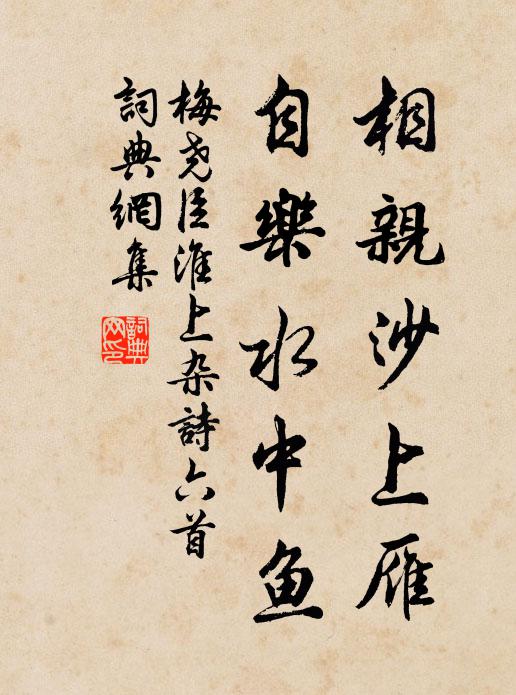 相親沙上雁
自樂水中鱼
梅尧臣淮上杂詩六首
詞典網集
詞典网印